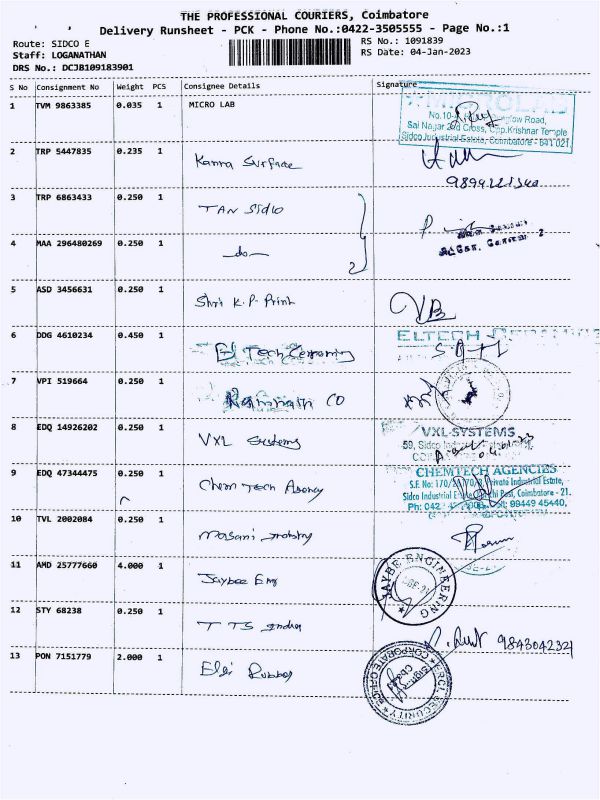 THE PROFESSIONAL COURIERS, Coimbatore
Delivery Runsheet - PCK - Phone No.:0422-3505555 - Page No.:1
Route: SIDCO E
RS No.: 1091839
Staff: LOGANATHAN
RS Date: 04-Jan-2023
DRS No.: DCJB109183901
S No Consignment No Weight PCS Consignee Details Signature
1 TVM 9863385 0.035 1 MICRO LAB
No.10-
Road,
Sai Nagar 2nd Cross, Opp.Krishnar Temple
Sidco Industrial Estate, Coimbatore - 641 021.
2 TRP 5447835 0.235 1 Kanna Surface
3 TRP 6863433 0.250 1 TAN Sidco
4 MAA 296480269 0.250 1 -do-
5 ASD 3456631 0.250 1 Shri K.P. Print
VB
6 DDG 4610234 0.450 1 El Tech
ELTECH
7 VPI 519664 0.250 1 CO
8 EDQ 14926202 0.250 1 VXL Systems
VXL SYSTEMS
59, Sidco
9 EDQ 47344475 0.250 1 Chem Tech Agency
CHEMTECH AGENCIES
S.F. No: 170/ Private Industrial Estate,
Sidco Industrial Post, Coimbatore - 21.
Ph: 042 99449 45440,
10 TVL 2002084 0.250 1 Masani
11 AMD 25777660 4.000 1 Jaybee Eng
JAYBE ENGINEERING
12 STY 68238 0.250 1 T TS India
9843042321
13 PON 7151779 2.000 1 Elgi Rubber
CORPORATE OFFICE
SECURITY